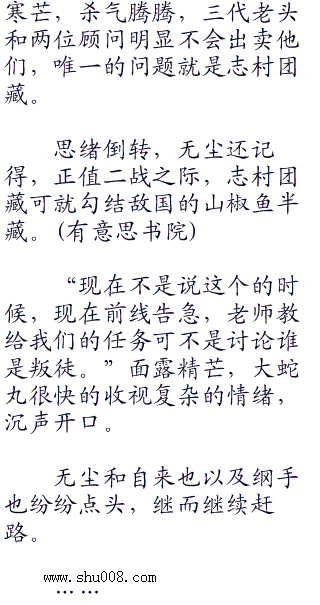 寒芒，杀气腾腾，三代老头
和两位顾问明显不会出卖他
们，唯一的问题就是志村团
藏。
思绪倒转，无尘还记
得，正值二战之际，志村团
藏可就勾结敌国的山椒鱼半
藏。(有意思书院)
“现在不是说这个的时
候，现在前线告急，老师教
给我们的任务可不是讨论谁
是叛徒。”面露精芒，大蛇
丸很快的收视复杂的情绪，
沉声开口。
无尘和自来也以及纲手
也纷纷点头，继而继续赶
路。
www.shu008.com
……